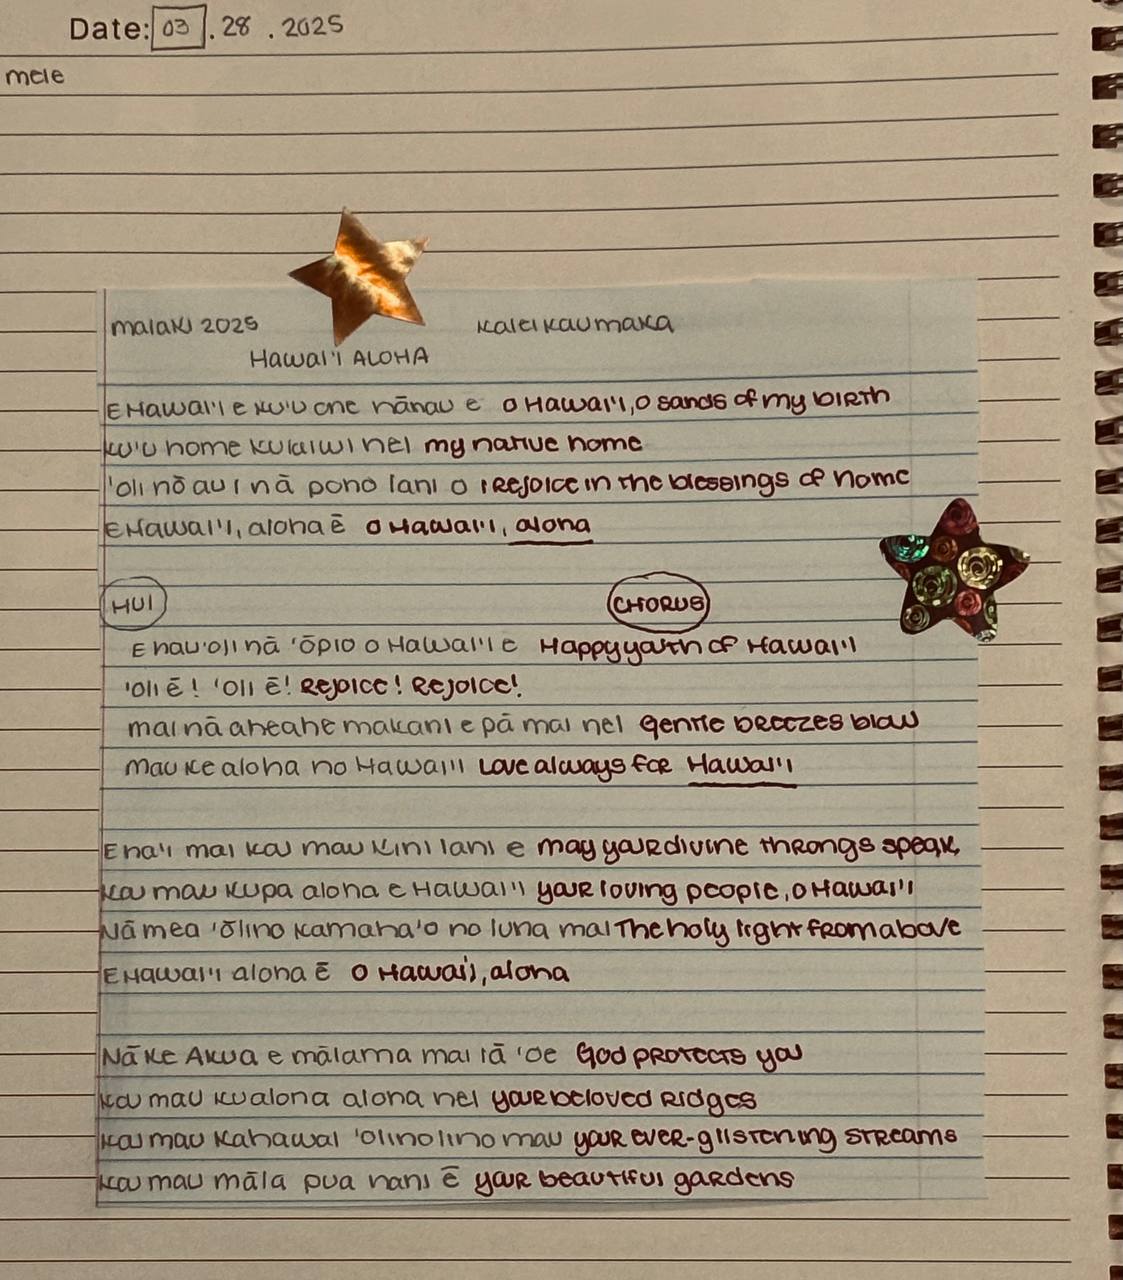 Date: 03 . 28 . 2025
mele
malaki 2025 kaleikaumaka
Hawai'i ALOHA
E Hawai'i e ku'u one hānau e O Hawai'i, O sands of my birth
ku'u home kulaiwi nei my native home
'oli nō au i nā pono lani o i rejoice in the blessings of home
E Hawai'i, aloha ē O Hawai'i, aloha
HUI CHORUS
E hau'oli nā 'ōpio o Hawai'i e Happy youth of Hawai'i
'oli ē! 'oli ē! Rejoice! Rejoice!
mai nā aheahe makani e pā mai nei Gentle breezes blow
mau ke aloha no Hawai'i Love always for Hawai'i
E ha'i mai kou mau kini lani e may your divine throngs speak,
kou mau kupa aloha e Hawai'i your loving people, O Hawai'i
Nā mea 'ōlino kamaha'o no luna mai The holy light from above
E Hawai'i aloha ē O Hawai'i, aloha
Nā ke Akua e mālama mai iā 'oe God protects you
kou mau kualona aloha nei your beloved Ridges
kou mau kahawai 'olinolino mau your ever-glistening streams
kou mau māla pua nani ē your beautiful gardens